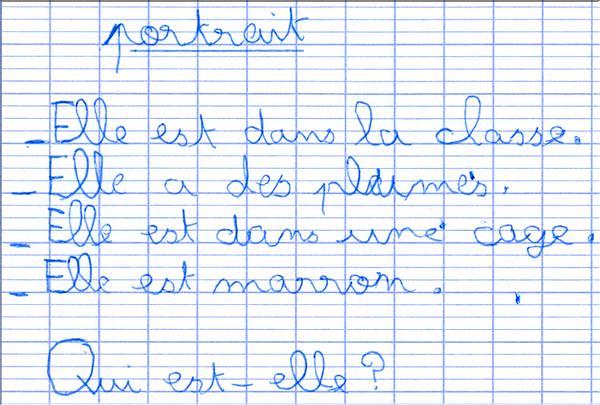 portrait
_ Elle est dans la classe.
_ Elle a des plumes.
_ Elle est dans une cage.
_ Elle est marron.
Qui est-elle ?